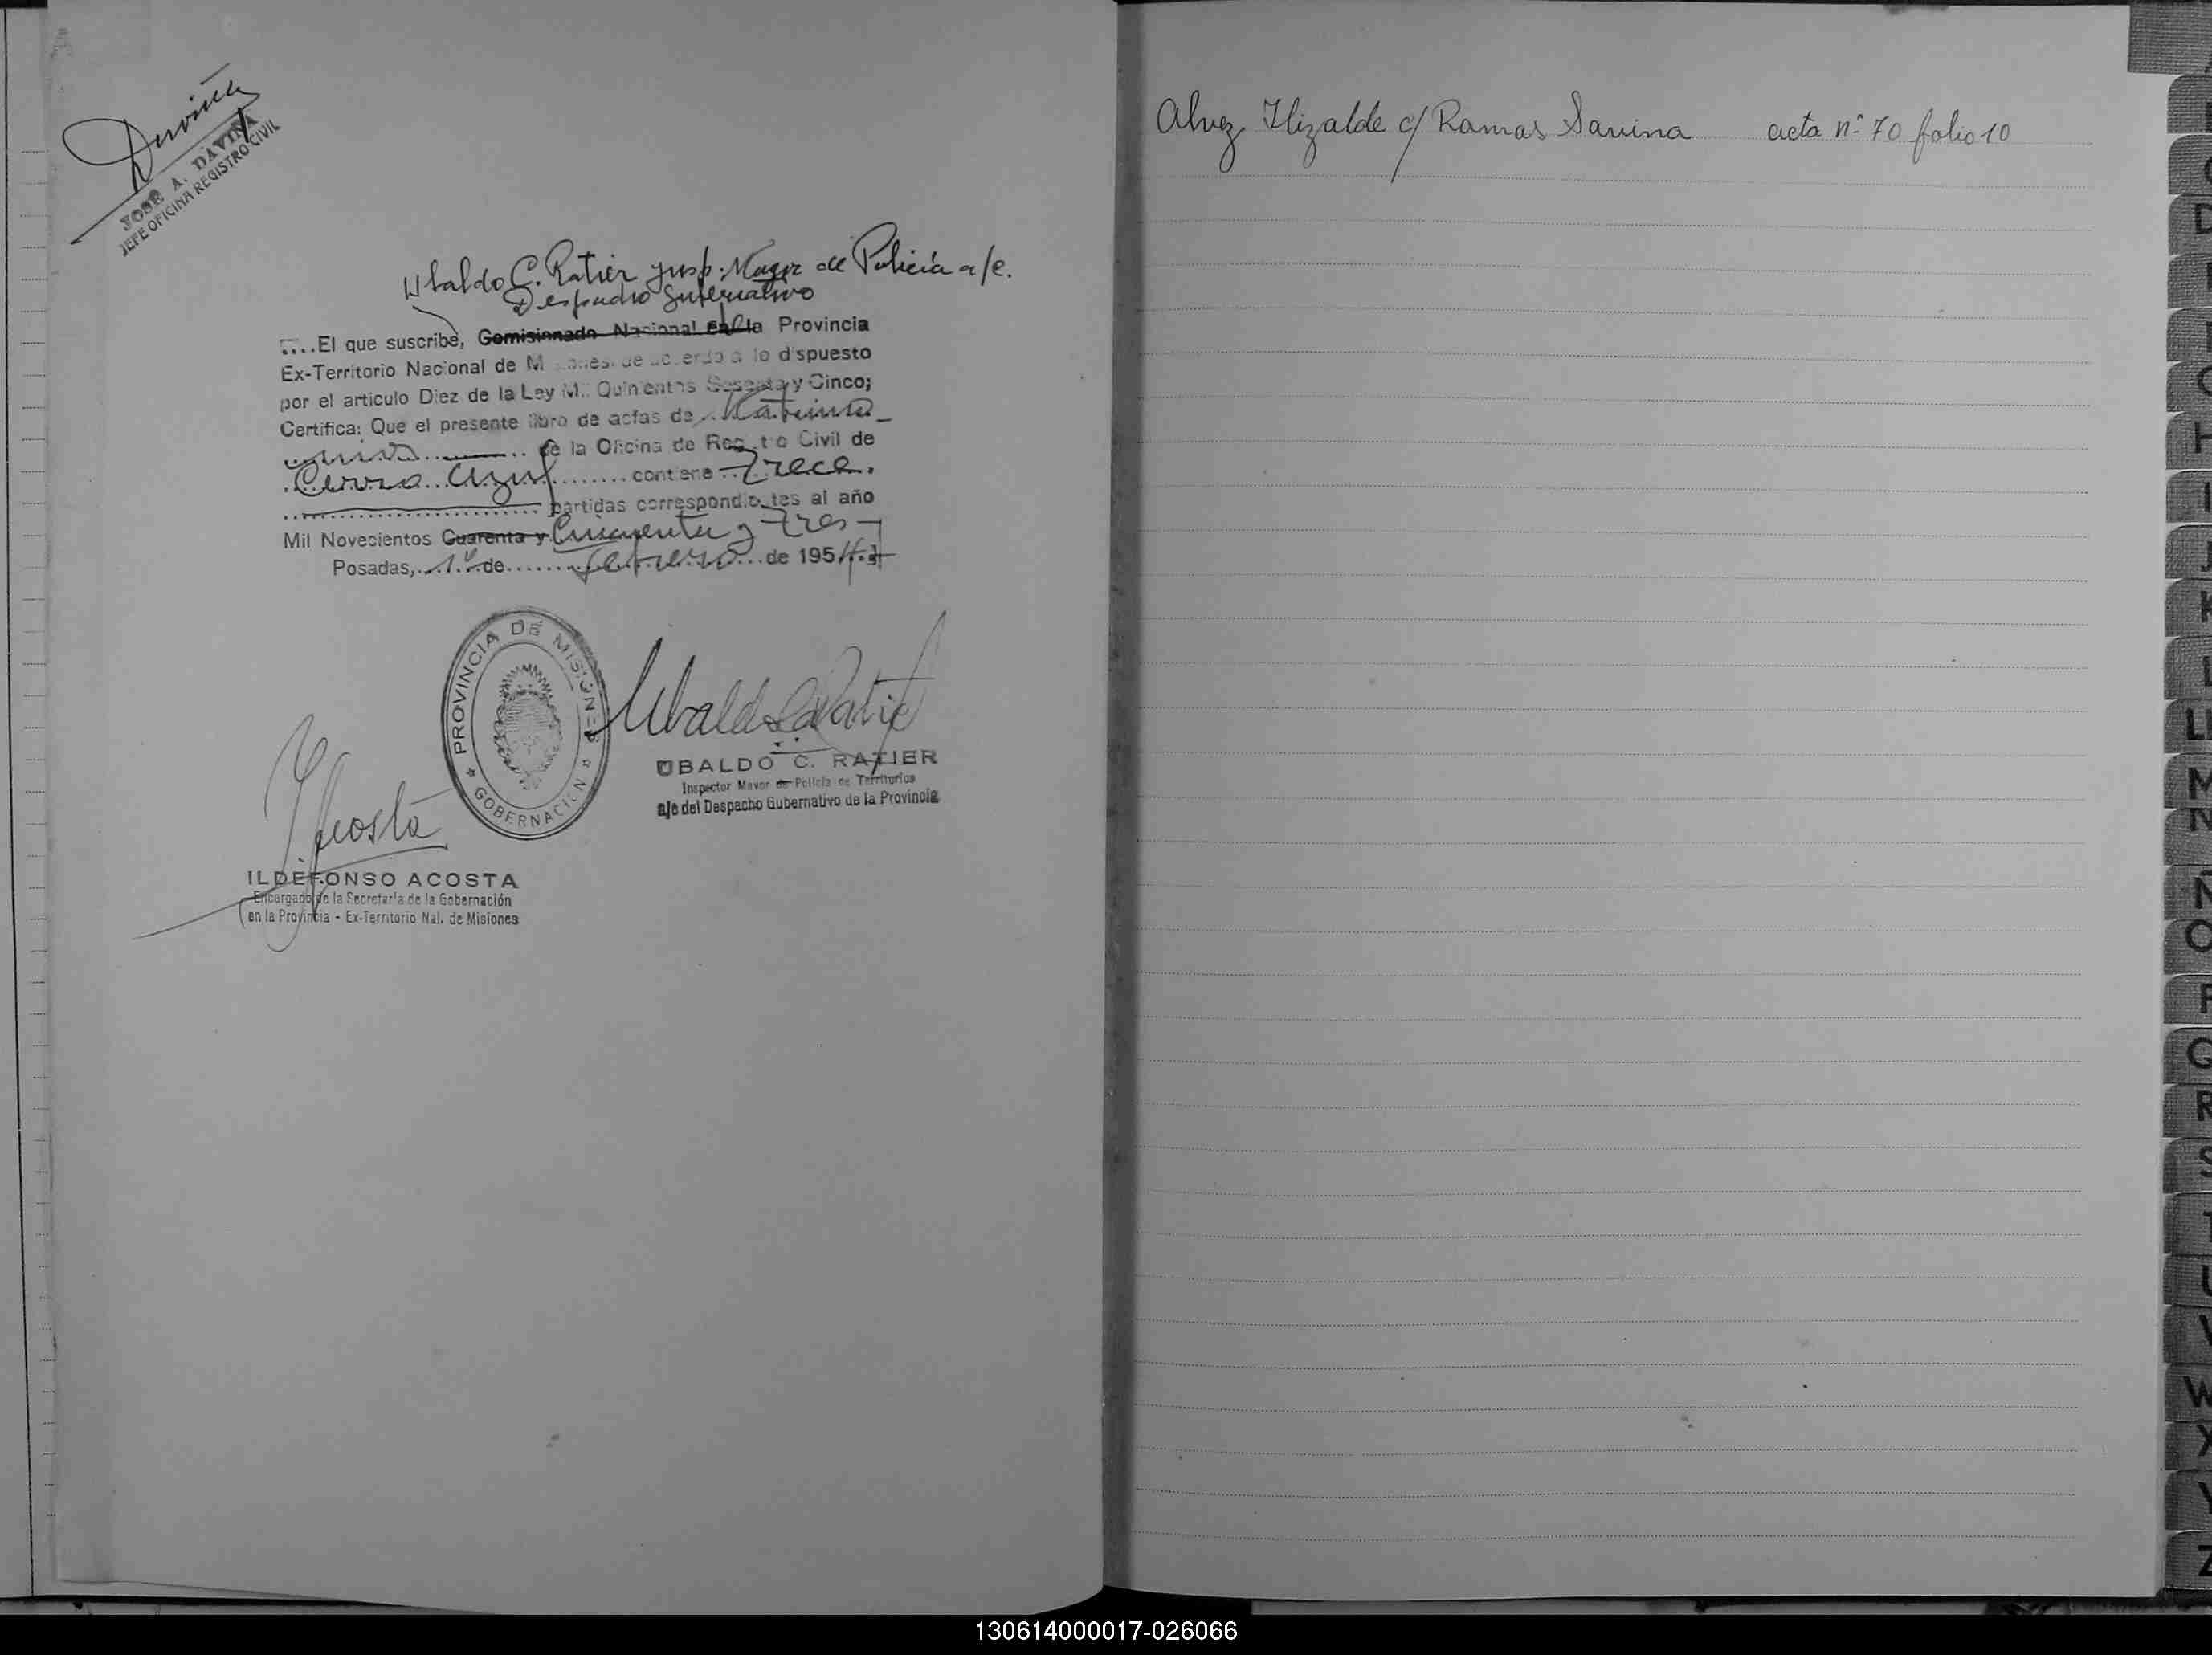 Daviña
JOSE A. DAVIÑA
JEFE OFICINA REGISTRO CIVIL
Ubaldo C. Ratier Insp. Mayor de Policía a/c.
Despacho Gubernativo
....El que suscribe, Comisionado Nacional en la Provincia
Ex-Territorio Nacional de Misiones, de acuerdo a lo dispuesto
por el articulo Diez de la Ley Mil Quinientos Sesenta y Cinco;
Certifica: Que el presente libro de actas de Matrimo-
nios de la Oficina de Registro Civil de
Cerro Azul contiene Trece.
partidas correspondientes al año
Mil Novecientos Cuarenta y Cincuenta y Tres
Posadas, 1º de febrero de 1954
PROVINCIA DE MISIONES
GOBERNACION
Ubaldo C. Ratier
UBALDO C. RATIER
Inspector Mayor de Policía de Territorios
a/c del Despacho Gubernativo de la Provincia
Acosta
ILDEFONSO ACOSTA
Encargado de la Secretaría de la Gobernación
en la Provincia - Ex-Territorio Nal. de Misiones
Alvez Ilizalde c/ Ramas Savina acta nº 70 folio 10
D
I
J
K
L
LL
M
N
Ñ
O
P
Q
R
S
T
U
V
W
X
Y
Z
130614000017-026066